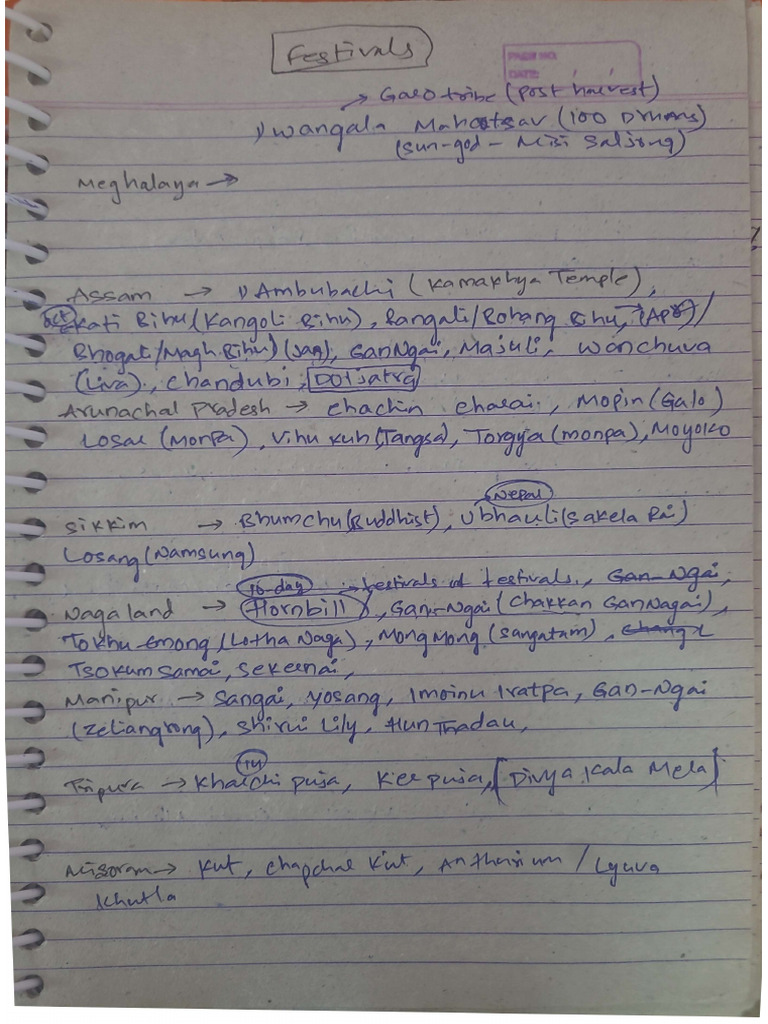 Festivals
PAGE NO.
DATE:
→ Garo tribe (post harvest)
1) Wangala Mahotsav (100 Drums)
(sun-god - Misi Saljong)
Meghalaya →
Assam → 1) Ambubachi (Kamakhya Temple),
Oct Kati Bihu (Kangoli Bihu), Rangali/Bohang Bihu, → (Apr)/
Bhogali/Magh Bihu) (Jan), GanNgai, Majuli, Wanchuva
(Tiva)., Chandubi, Doljatra
Arunachal Pradesh → Chachin Charai., Mopin (Galo)
Losar (Monpa), Vihu Kuh (Tangsa), Torgya (monpa), Moyoko
Nepal
Sikkim → Bhumchu (Buddhist), Ubhauli (Sakela Rai)
Losang (Namsung)
10-day → festivals of festivals., Gan-Ngai,
Nagaland → Hornbill, Gan-Ngai (Chakkan GanNagai),
Tokhu Emong (Lotha Naga), Mong Mong (Sangatam),
Tsokum Samai, Sekrenai,
Manipur → Sangai, Yosang, Imoinu Iratpa, Gan-Ngai
(Zeliangrong), Shirui Lily, Hun Thadau,
14
Tripura → Kharchi puja, Ker puja, [Divya Kala Mela]
Mizoram → Kut, Chapchar Kut, Anthurium / Lyuva
Khutla